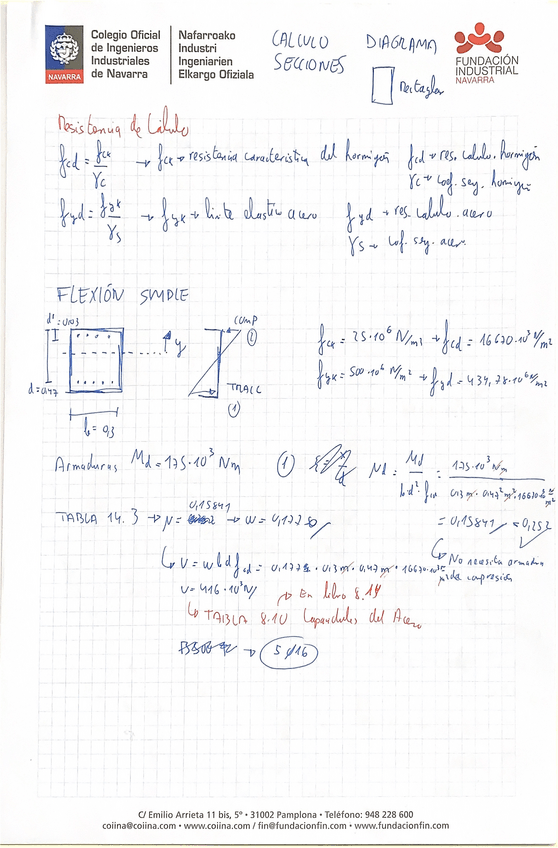 Colegio Oficial
de Ingenieros
Industriales
de Navarra
Nafarroako
Industri
Ingeniarien
Elkargo Ofiziala
NAVARRA
CALCULO
SECCIONES
DIAGRAMA
Rectangular
FUNDACIÓN
INDUSTRIAL
NAVARRA
Resistencia de Cálculo
fcd = fck/γc → fck → resistencia característica del hormigón
fcd → res. calculo. hormigón
γc → Coef. seg. hormigón
fyd = fyk/γs → fyk → limite elastico acero
fyd → res. calculo. acero
γs → Cof. seg. acero
FLEXIÓN SIMPLE
d' = 0,03
d = 0,47
b = 0,3
y
COMP
(2)
TRACC
(1)
fck = 25·10⁶ N/m² → fcd = 16670·10³ N/m²
fyk = 500·10⁶ N/m² → fyd = 434,78·10⁶ N/m²
Armaduras Md = 175·10³ Nm
(1) μd = Md/(b·d²·fcd) = 175·10³ Nm/(0,3 m · 0,47² m² · 16670·10³ N/m²)
= 0,15841 < 0,252
↳ No necesita armadura de compresión
TABLA 14.3 → μ = 0,15841 → ω = 0,1778
↳ U = ω b d fcd = 0,1778 · 0,3 m · 0,47 m · 16670·10³
U = 416·10³ N → En libro 8.14
↳ TABLA 8.10 Capacidades del Acero
→ 5 ∅16
C/ Emilio Arrieta 11 bis, 5º • 31002 Pamplona • Teléfono: 948 228 600
coiina@coiina.com • www.coiina.com / fin@fundacionfin.com • www.fundacionfin.com